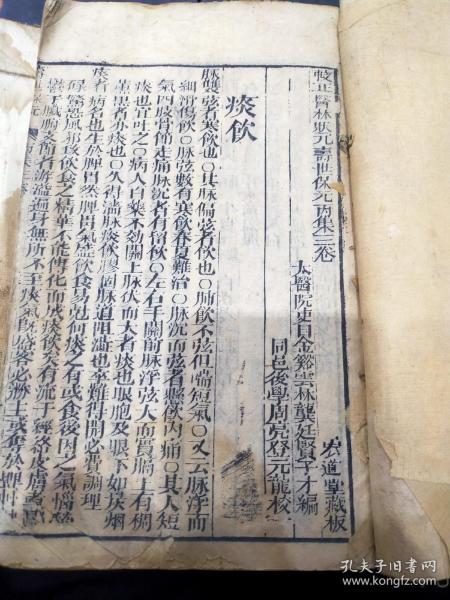 較正醫林狀元壽世保元丙集三卷
太醫院吏目金谿雲林龔廷賢子才編
同邑後學周亮登元龍校
宏道堂藏板
痰飲
脉雙弦者寒飲也○其脉偏弦者飲也○肺飲不弦但喘短氣○又云脉浮而
細滑傷飲○脉弦數有寒飲春夏難治○脉沉而弦者懸飲內痛○其人短
氣四肢骨節走痛脉沉者有留飲○左右手關前脉浮弦大而實膈上有稠
痰也宜吐之○病人百藥不効關上脉伏而大者痰也眼胞及眼下如炱烟
薰黑者亦痰也○久得濇脉痰飲膠固脉道阻濇也卒難得開必費調理
痰者病名也生於脾胃然脾胃氣盛飲食易尅何痰之有或食後因之氣惱
驚恐風
飲食之精華不能傳化而成痰飲矣有流于經絡皮膚者
臟腑皮
者游溢遍身無所不至痰氣既盛客必勝主或奪於脾
孔夫子旧书网
www.kongfz.com